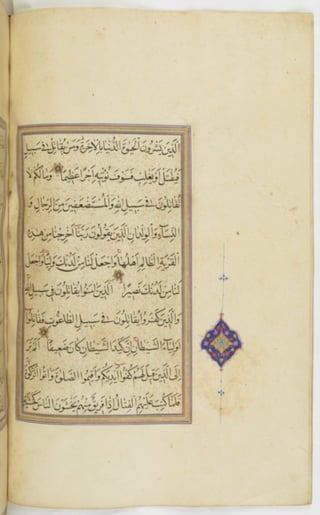 الَّذِينَ يَشْرُونَ الْحَيٰوةَ الدُّنْيَا بِالْاٰخِرَةِ وَمَنْ يُقَاتِلْ فِى سَبِيلِ
فَيُقْتَلْ اَوْ يَغْلِبْ فَسَوْفَ نُؤْتِيهِ اَجْرًا عَظِيمًا وَمَا لَكُمْ لَا
تُقَاتِلُونَ فِى سَبِيلِ اللهِ وَالْمُسْتَضْعَفِينَ مِنَ الرِّجَالِ وَ
النِّسَاءِ وَالْوِلْدَانِ الَّذِينَ يَقُولُونَ رَبَّنَا اَخْرِجْنَا مِنْ هٰذِهِ
الْقَرْيَةِ الظَّالِمِ اَهْلُهَا وَاجْعَلْ لَنَا مِنْ لَدُنْكَ وَلِيًّا وَاجْعَلْ
لَنَا مِنْ لَدُنْكَ نَصِيرًا الَّذِينَ اٰمَنُوا يُقَاتِلُونَ فِى سَبِيلِ اللهِ
وَالَّذِينَ كَفَرُوا يُقَاتِلُونَ فِى سَبِيلِ الطَّاغُوتِ فَقَاتِلُوا
اَوْلِيَاءَ الشَّيْطَانِ اِنَّ كَيْدَ الشَّيْطَانِ كَانَ ضَعِيفًا اَلَمْ تَرَ
اِلَى الَّذِينَ قِيلَ لَهُمْ كُفُّوا اَيْدِيَكُمْ وَاَقِيمُوا الصَّلٰوةَ وَاٰتُوا الزَّكٰوةَ
فَلَمَّا كُتِبَ عَلَيْهِمُ الْقِتَالُ اِذَا فَرِيقٌ مِنْهُمْ يَخْشَوْنَ النَّاسَ كَخَشْيَةِ